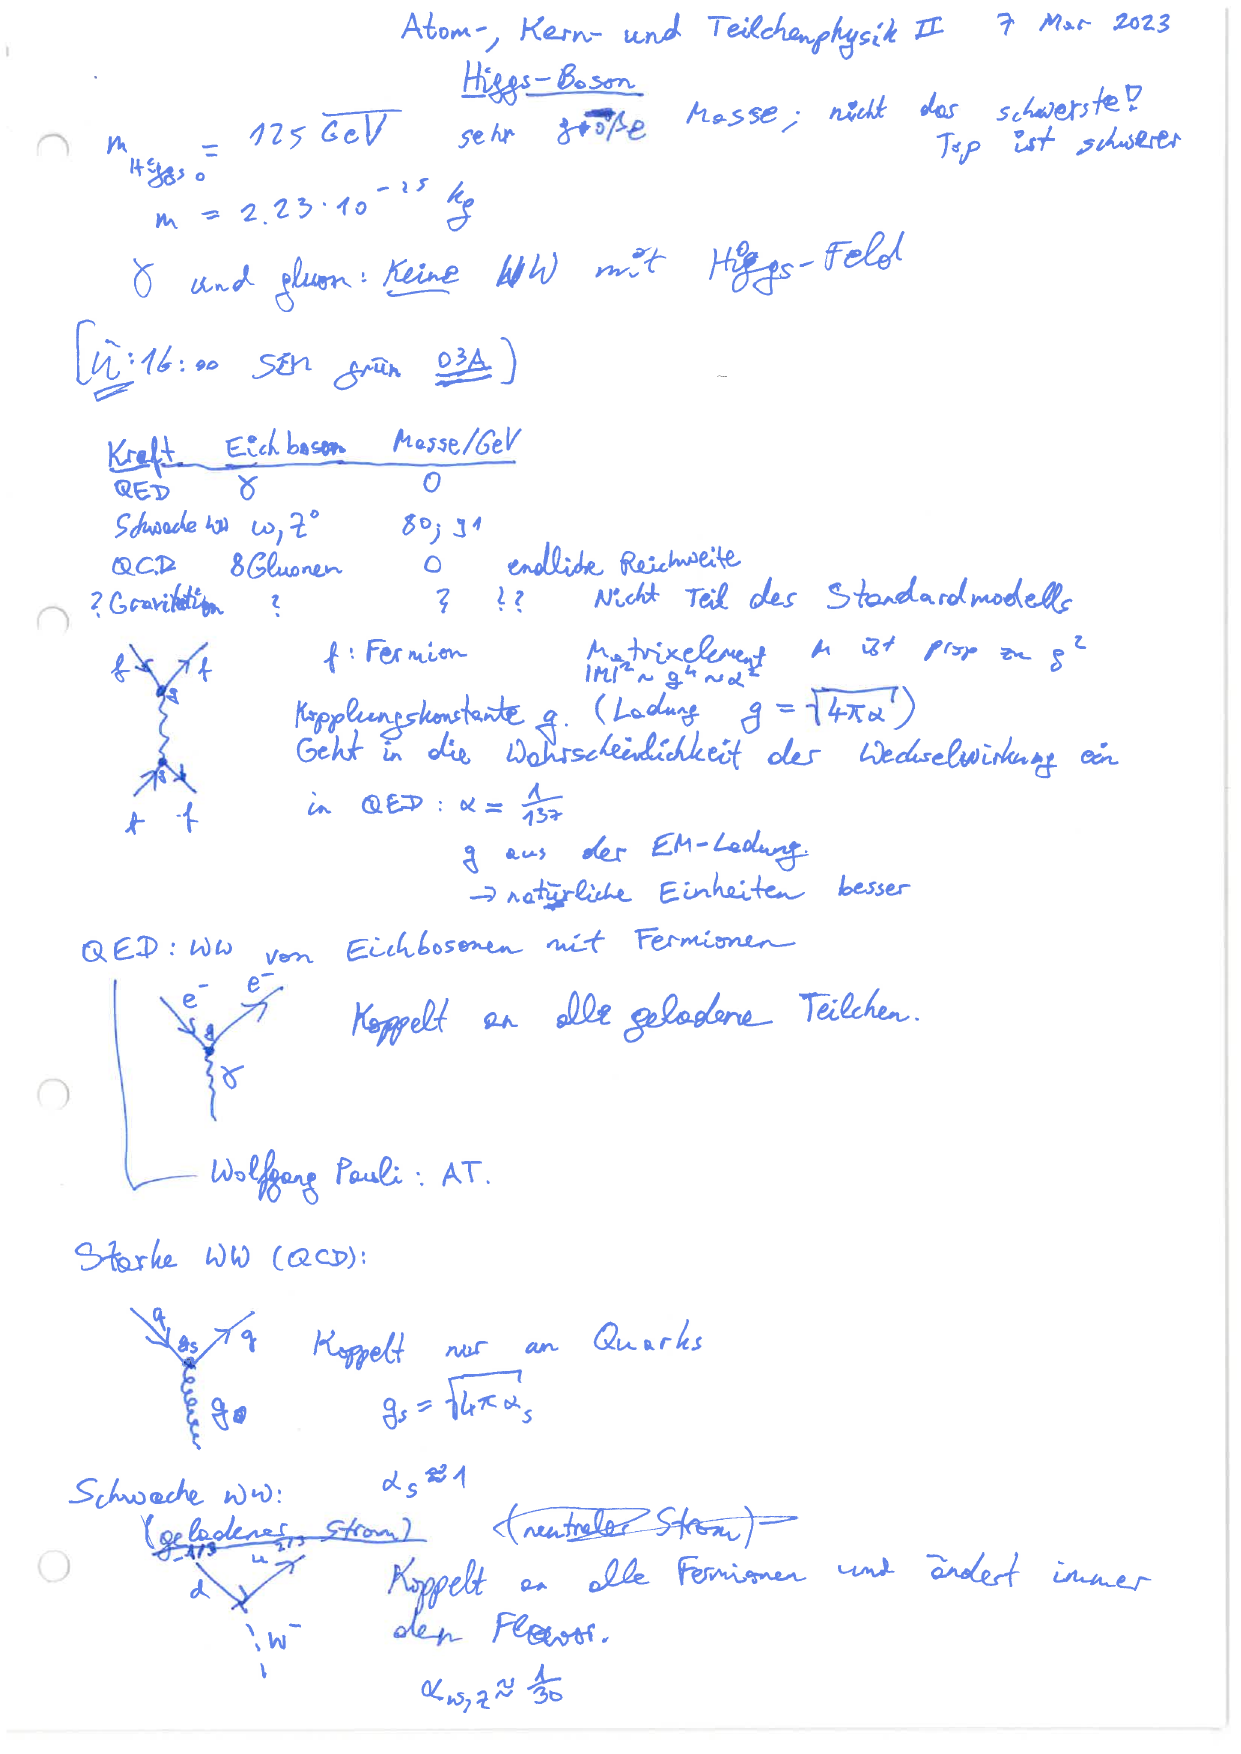 Atom-, Kern- und Teilchenphysik II 7 Mar 2023
Higgs-Boson
m_Higgs0 = 125 GeV sehr große Masse; nicht das schwerste!
Top ist schwerer
m = 2.23·10^-25 kg
γ und gluon: Keine WW mit Higgs-Feld
[Ü: 16:00 SEM grün 03A]
Kraft Eichboson Masse/GeV
QED γ 0
Schwache WW W, Z⁰ 80; 91
QCD 8 Gluonen 0 endliche Reichweite
? Gravitation ? ? !? Nicht Teil des Standardmodells
f f f: Fermion Matrixelement M ist prop zu g²
g |M|² ~ g⁴ ~ α²
Kopplungskonstante g. (Ladung g = √4πα)
Geht in die Wahrscheinlichkeit der Wechselwirkung ein
g
f f in QED: α = 1/137
g aus der EM-Ladung.
→ natürliche Einheiten besser
QED: WW von Eichbosonen mit Fermionen
e⁻ e⁻
g Koppelt an alle geladene Teilchen.
γ
Wolfgang Pauli: AT.
Starke WW (QCD):
q q
gs Koppelt nur an Quarks
g gs = √4παs
αs ≈ 1
Schwache WW:
(geladener Strom) (neutraler Strom)
-1/3 u 2/3
d Koppelt an alle Fermionen und ändert immer
W⁻ den Flavor.
α_W,Z ≈ 1/30